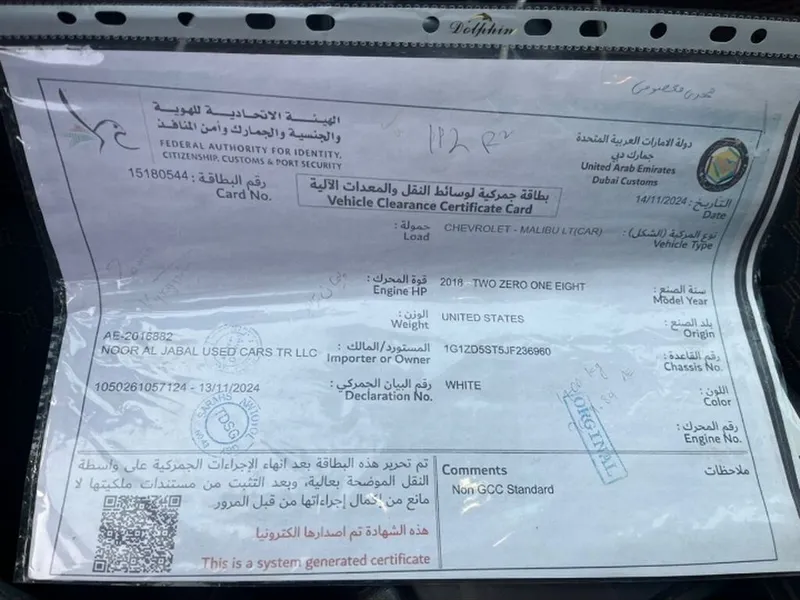 Dolphin
الهيئة الاتحادية للهوية
والجنسية والجمارك وأمن المنافذ
FEDERAL AUTHORITY FOR IDENTITY,
CITIZENSHIP, CUSTOMS & PORT SECURITY
112
دولة الامارات العربية المتحدة
جمارك دبي
United Arab Emirates
Dubai Customs
رقم البطاقة : 15180544
Card No.
بطاقة جمركية لوسائط النقل والمعدات الآلية
Vehicle Clearance Certificate Card
التاريخ : 14/11/2024
Date
نوع المركبة (الشكل) : CHEVROLET - MALIBU LT(CAR)
Vehicle Type
حمولة :
Load
سنة الصنع : 2018 TWO ZERO ONE EIGHT
Model Year
قوة المحرك :
Engine HP
بلد الصنع : UNITED STATES
Origin
الوزن :
Weight
رقم القاعدة : 1G1ZD5ST5JF236960
Chassis No.
المستورد/المالك : AE-2016882
NOOR AL JABAL USED CARS TR LLC
Importer or Owner
اللون : WHITE
Color
رقم البيان الجمركي : 1050261057124 - 13/11/2024
Declaration No.
رقم المحرك :
Engine No.
ORGINAL
TDSG
تم تحرير هذه البطاقة بعد انهاء الإجراءات الجمركية على واسطة
النقل الموضحة بعالية، وبعد التثبت من مستندات ملكيتها لا
مانع من إكمال إجراءاتها من قبل المرور
هذه الشهادة تم اصدارها الكترونيا
This is a system generated certificate
Comments ملاحظات
Non GCC Standard